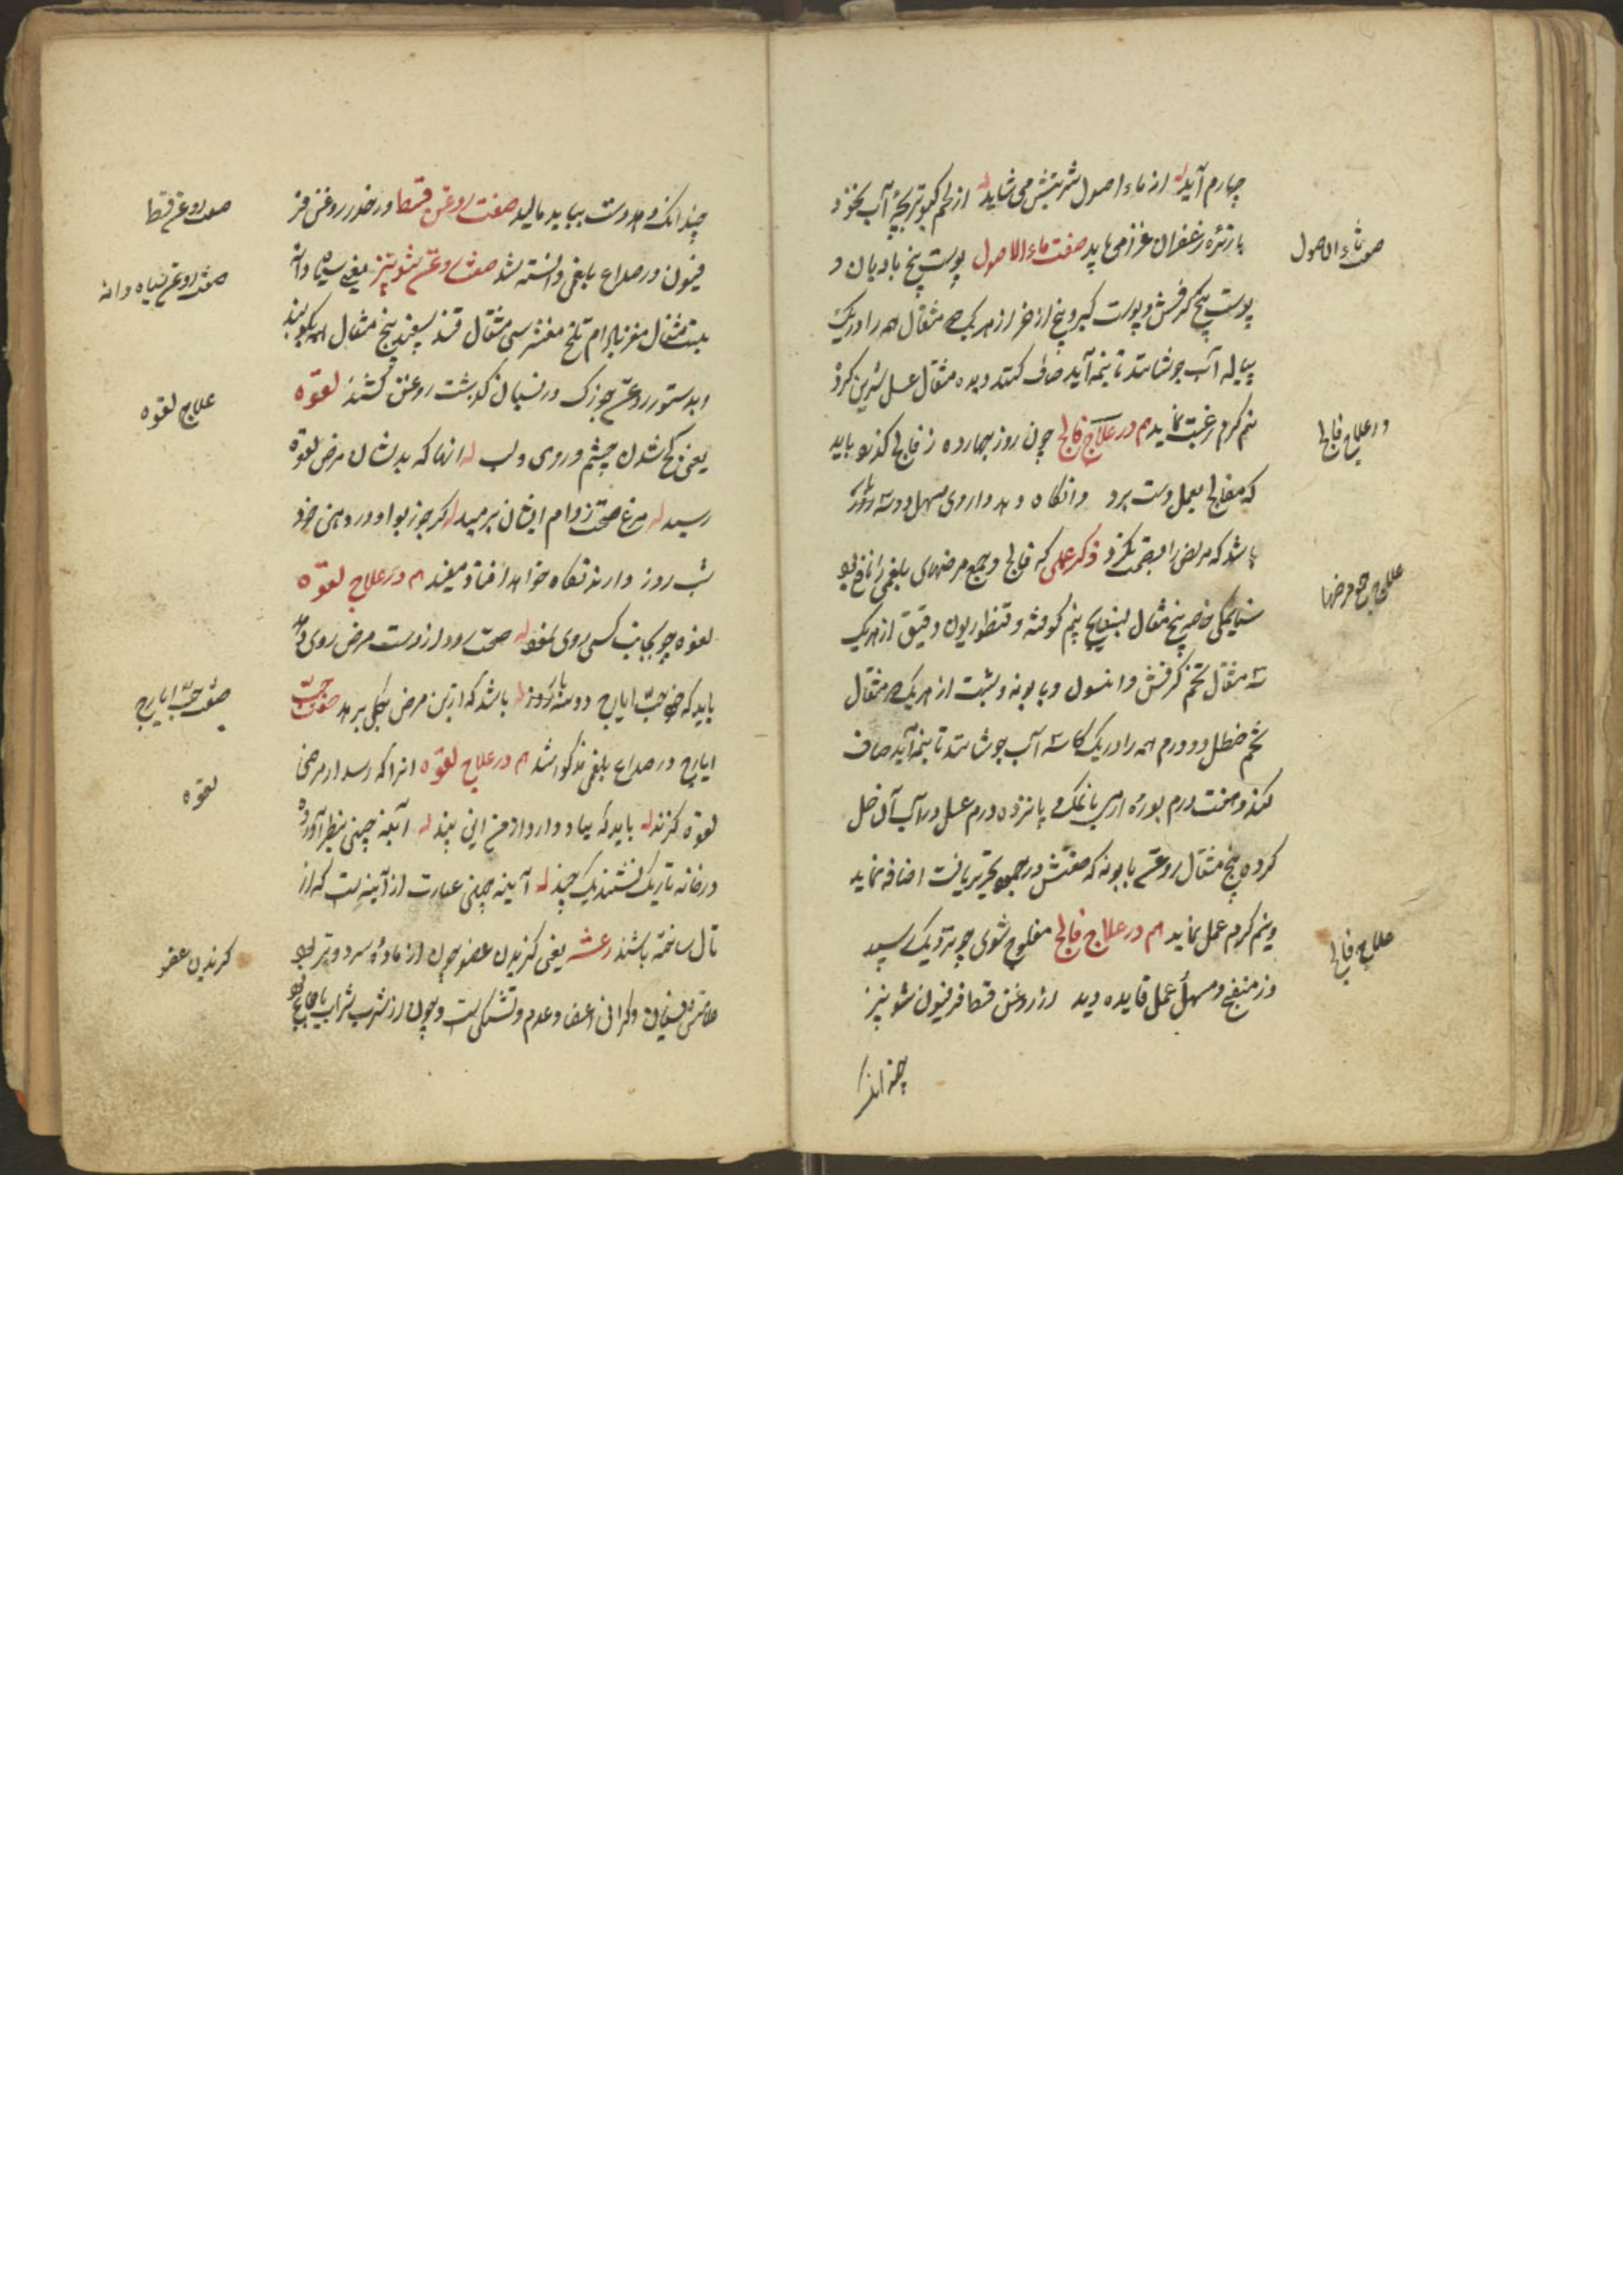 چهارم آید له از ماء اصول شربتش می شاید له از لحم کبوتر بچه آب نخود
با زیره زعفران غذا می باید صفت ماء الاصول پوست بیخ بادیان و
صفت ماء الاصول
پوست بیخ کرفش و پوست کبر و بیخ اذخر از هر یک مثقال همه را در یک
پیاله آب جوشانند تا نیمه آید صاف کنند و بده مثقال عسل شیرین کرده
نیم گرم رغبت نماید هم در علاج فالج چون روز چهارده ز فالج گذرد باید
در علاج فالج
که مفالج بعمل دست برد وانگاه دهد داروی مسهل دو سه روز
باشد که مریض را بصحت نگرد ذکر عملی که فالج و جمیع مرضهای بلغمی را نافع بود
علاج جمیع مرضها
سنای مکی خاصه پنج مثقال بسفایج نیم کوفته و قنطوریون دقیق از هر یک
سه مثقال تخم کرفش و انیسون و بابونه و شبت از هر یک مثقال
شحم حنظل دو درم همه را در یک کاسه آب جوشانند تا نیمه آید صاف
کنند و هفت درم بوره ارمنی با نمک و پانزده درم عسل در آب آن حل
کرده پنج مثقال روغن بابونه که صفتش در تحریر یافت اضافه نماید
و نیم گرم عمل نماید هم در علاج فالج مفلوج شوی چو نزدیک سپید
علاج فالج
وز منضج و مسهل عمل فایده دید از روغن قسط فرفیون شونیز
چندانک
چندانک دهد دست بباید مالید صفت روغن قسط در خدر روغن فر
صفت روغن قسط
فیون در صداع بلغمی دانسته شد صفت روغن شونیز یعنی سیاه دانه
صفت روغن سیاه دانه
بیست مثقال مغز بادام تلخ مقشر سی مثقال قند سپید پنج مثقال همه بکوبند
و بدستور روغن جوزک در نسیان گذشت روغن کشند لقوه
علاج لقوه
یعنی کج شدن چشم و روی و لب له انها که بدیشان مرض لقوه
رسید له مرغ صحت ز دام ایشان برمید له گر جوز بوا در دهن خود
شب روز دارند نگاه خواهد افتاد مفید هم در علاج لقوه
لقوه چو بجانب کسی روی نهد له صحت رود از دست مرض روی دهد
باید که خورد حب ایارج دو سه بار روز له باشد که ازین مرض بکلی برهد صفت حب
صفت حب ایارج
ایارج در صداع بلغمی مذکور شد هم در علاج لقوه انرا که رسد از مرض
لقوه
لقوه گزند له باید که بیاد دارد از من این پند له آیینه چینی بنظر آورده
در خانه تاریک نشیند یک چند له آیینه چینی عبارت از آیینه است که از
تال ساخته باشند رعشه یعنی لرزیدن عضو چون از ماده سرد و تر بود
لرزیدن عضو
علامتش نسیان و گرانی اعضا و عدم تشنگی است و چون از شرب شراب یا جماع بود